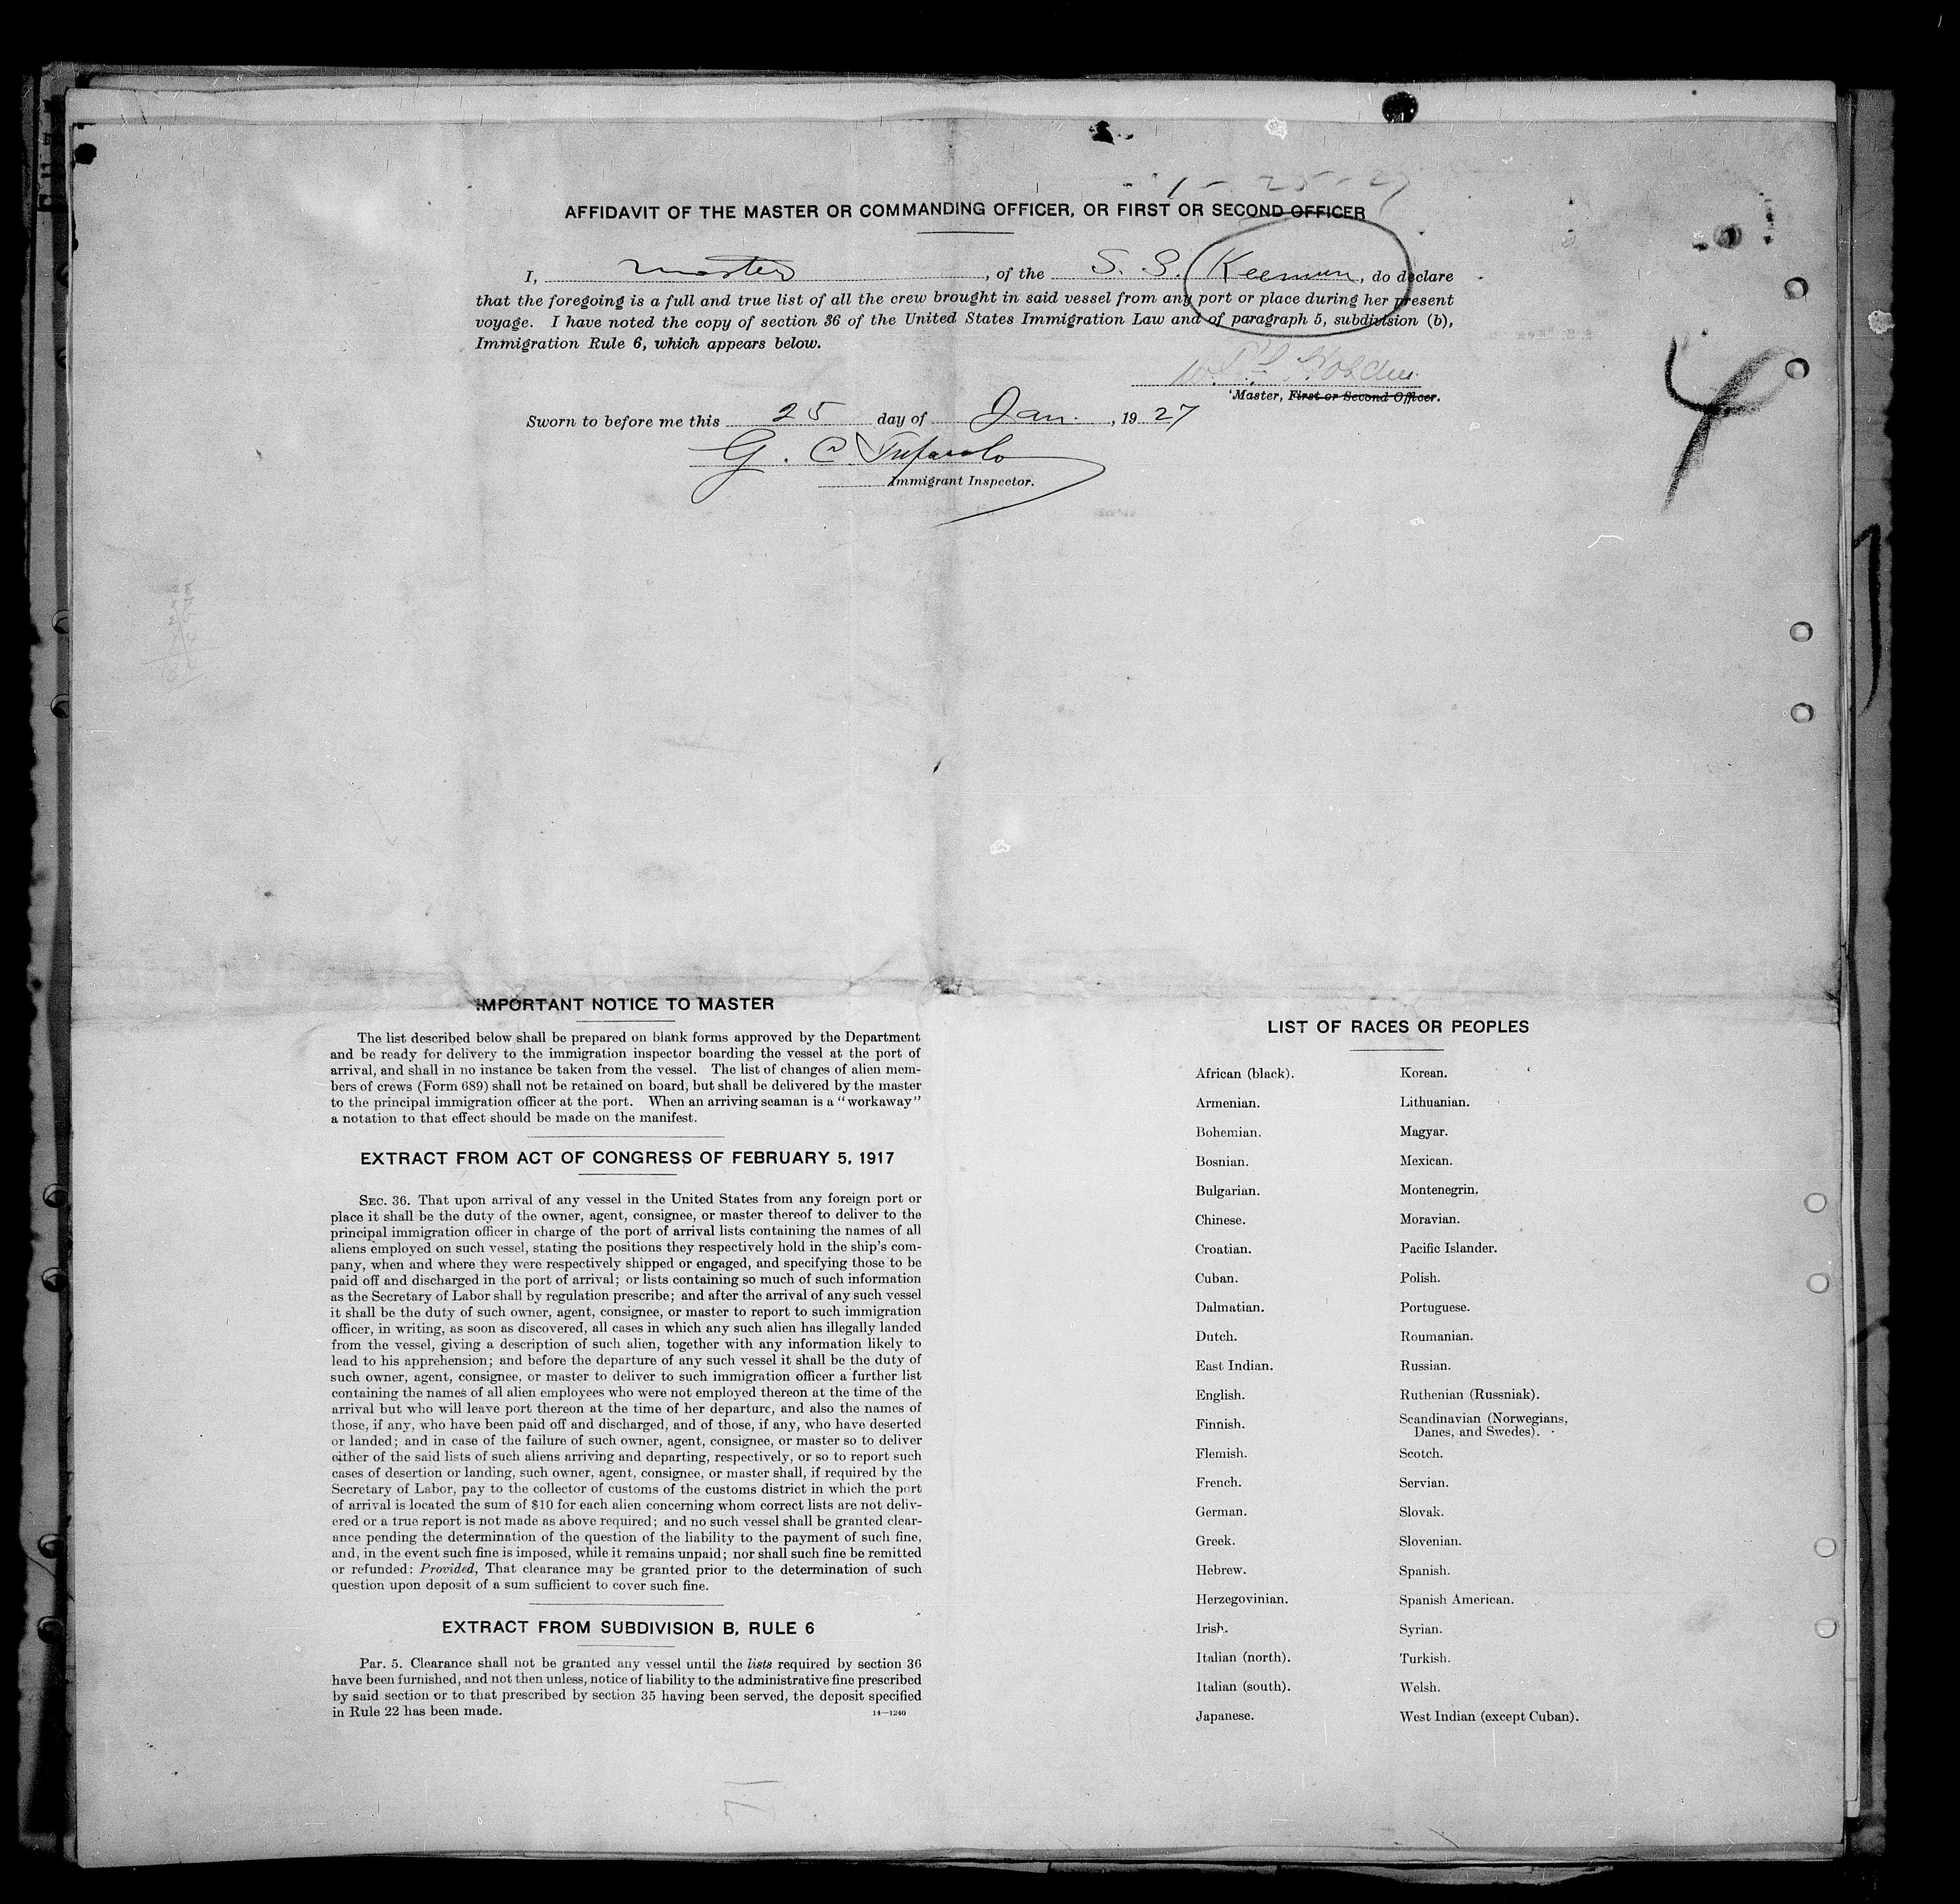 1-25-27
AFFIDAVIT OF THE MASTER OR COMMANDING OFFICER, OR FIRST OR SECOND OFFICER
I, master, of the S. S. Keemun, do declare
that the foregoing is a full and true list of all the crew brought in said vessel from any port or place during her present
voyage. I have noted the copy of section 36 of the United States Immigration Law and of paragraph 5, subdivision (b),
Immigration Rule 6, which appears below.
Master, First or Second Officer.
Sworn to before me this 25 day of Jan., 1927
G. C.
Immigrant Inspector.
IMPORTANT NOTICE TO MASTER
The list described below shall be prepared on blank forms approved by the Department
and be ready for delivery to the immigration inspector boarding the vessel at the port of
arrival, and shall in no instance be taken from the vessel. The list of changes of alien mem-
bers of crews (Form 689) shall not be retained on board, but shall be delivered by the master
to the principal immigration officer at the port. When an arriving seaman is a "workaway"
a notation to that effect should be made on the manifest.
EXTRACT FROM ACT OF CONGRESS OF FEBRUARY 5, 1917
SEC. 36. That upon arrival of any vessel in the United States from any foreign port or
place it shall be the duty of the owner, agent, consignee, or master thereof to deliver to the
principal immigration officer in charge of the port of arrival lists containing the names of all
aliens employed on such vessel, stating the positions they respectively hold in the ship's com-
pany, when and where they were respectively shipped or engaged, and specifying those to be
paid off and discharged in the port of arrival; or lists containing so much of such information
as the Secretary of Labor shall by regulation prescribe; and after the arrival of any such vessel
it shall be the duty of such owner, agent, consignee, or master to report to such immigration
officer, in writing, as soon as discovered, all cases in which any such alien has illegally landed
from the vessel, giving a description of such alien, together with any information likely to
lead to his apprehension; and before the departure of any such vessel it shall be the duty of
such owner, agent, consignee, or master to deliver to such immigration officer a further list
containing the names of all alien employees who were not employed thereon at the time of the
arrival but who will leave port thereon at the time of her departure, and also the names of
those, if any, who have been paid off and discharged, and of those, if any, who have deserted
or landed; and in case of the failure of such owner, agent, consignee, or master so to deliver
either of the said lists of such aliens arriving and departing, respectively, or so to report such
cases of desertion or landing, such owner, agent, consignee, or master shall, if required by the
Secretary of Labor, pay to the collector of customs of the customs district in which the port
of arrival is located the sum of $10 for each alien concerning whom correct lists are not deliv-
ered or a true report is not made as above required; and no such vessel shall be granted clear-
ance pending the determination of the question of the liability to the payment of such fine,
and, in the event such fine is imposed, while it remains unpaid; nor shall such fine be remitted
or refunded: Provided, That clearance may be granted prior to the determination of such
question upon deposit of a sum sufficient to cover such fine.
EXTRACT FROM SUBDIVISION B, RULE 6
Par. 5. Clearance shall not be granted any vessel until the lists required by section 36
have been furnished, and not then unless, notice of liability to the administrative fine prescribed
by said section or to that prescribed by section 35 having been served, the deposit specified
in Rule 22 has been made.
14—1240
LIST OF RACES OR PEOPLES
African (black).
Armenian.
Bohemian.
Bosnian.
Bulgarian.
Chinese.
Croatian.
Cuban.
Dalmatian.
Dutch.
East Indian.
English.
Finnish.
Flemish.
French.
German.
Greek.
Hebrew.
Herzegovinian.
Irish.
Italian (north).
Italian (south).
Japanese.
Korean.
Lithuanian.
Magyar.
Mexican.
Montenegrin.
Moravian.
Pacific Islander.
Polish.
Portuguese.
Roumanian.
Russian.
Ruthenian (Russniak).
Scandinavian (Norwegians,
Danes, and Swedes).
Scotch.
Servian.
Slovak.
Slovenian.
Spanish.
Spanish American.
Syrian.
Turkish.
Welsh.
West Indian (except Cuban).